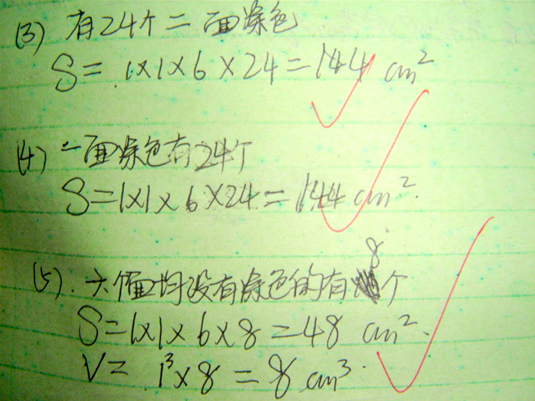 (3) 有24个二面涂色
S=1×1×6×24=144 cm²
(4) 一面涂色有24个
S=1×1×6×24=144 cm².
(5). 六个面均没有涂色的有8个
S=1×1×6×8=48 cm².
V= 1³×8=8 cm³.